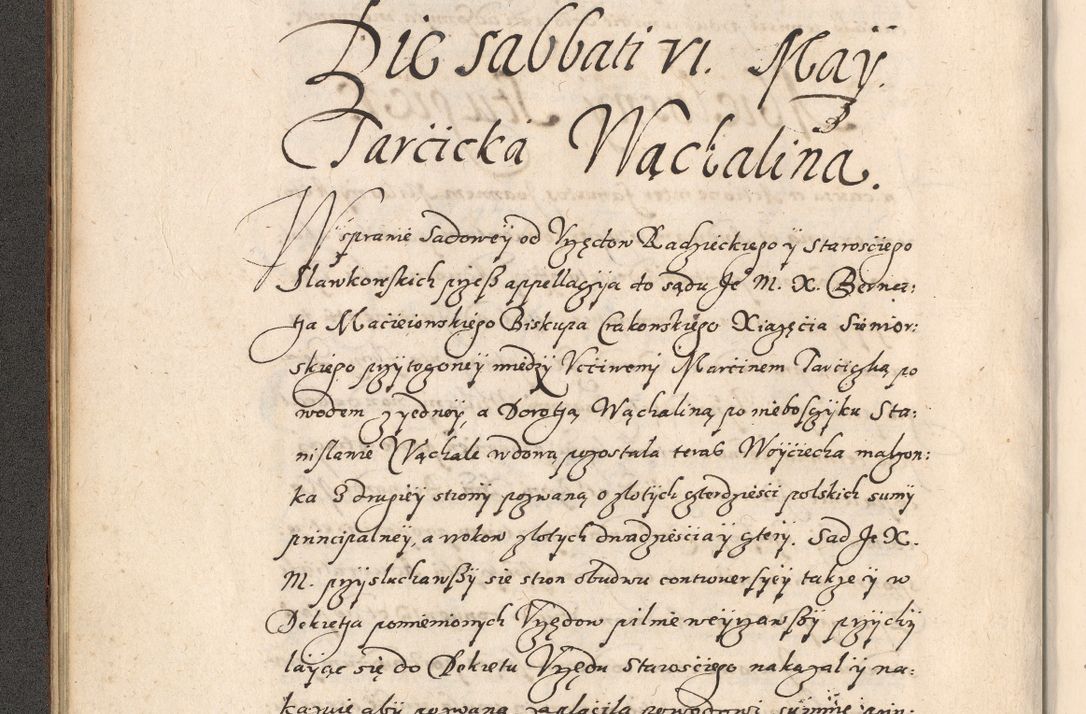 Die sabbati VI. Maÿ.
Tarcicka Wąchalina.
W sprawie Sadoweÿ od Vrzędow Radzieckiego ÿ Starosciego
Slawkowskich przesz appellaczÿa do sądu Je M. X. Berner:
tha Macieiowskiego Biskupa Crakowskiego Xiązęcia Siewior:
skiego przÿtoczoneÿ miedzÿ Vcciwemÿ Marcinem Tarciczką po
wodem z ÿedneÿ, a Dorotją Wąchaliną po nieboszczÿku Sta:
nislawie Wąchale wdową pozostala teras Woÿciecha malzon:
ka z drugieÿ stronÿ pozwaną o zlotÿch czterdziesci polskich sumÿ
principalneÿ, a wokow zlotÿch dwadziescia ÿ cterÿ. Sad Je X.
M. przÿsluchawszÿ sie stron obudwu controwersÿeÿ takze ÿ w
Dekretja pomienionÿch Vrzędow pilnie weÿrzawszÿ przÿchÿ
laÿąc się do Dekretu Vrzędu Starosciego nakazal ÿ na:
kazuie abÿ pozwana zaplaciła powodowi summę prin: